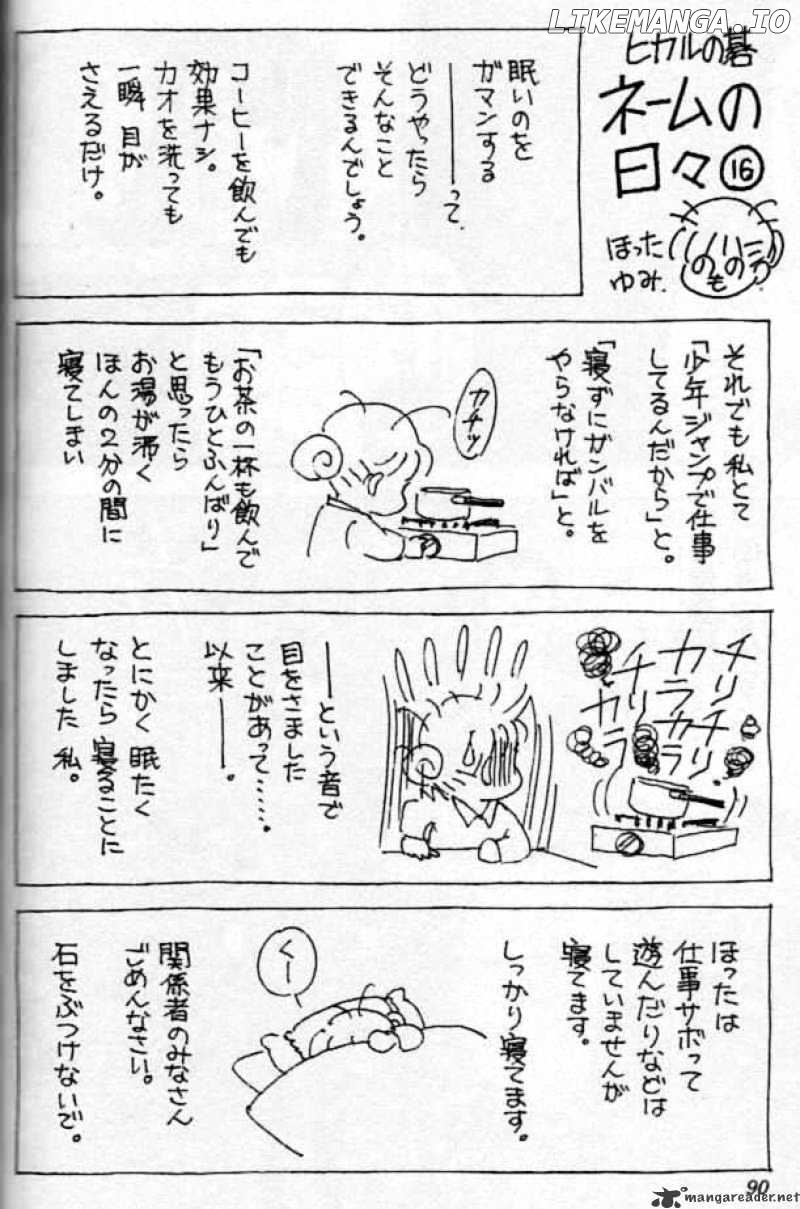 LIKEMANGA.IO
ヒカルの碁
ネームの
日々⑯
ほった
ゆみ
眠いのを
ガマンする
――って、
どうやったら
そんなこと
できるんでしょう。
コーヒーを飲んでも
効果ナシ。
カオを洗っても
一瞬 目が
さえるだけ。
それでも私とて
「少年ジャンプで仕事
してるんだから」と。
「寝ずにガンバルを
やらなければ」と。
カチッ
「お茶の一杯も飲んで
もうひとふんばり」
と思ったら
お湯が沸く
ほんの2分の間に
寝てしまい
チリ
チリ
カラ
カラ
チリ
カラ
――という音で
目をさました
ことがあって……。
以来――。
とにかく 眠たく
なったら 寝ることに
しました 私。
ほったは
仕事サボって
遊んだりなどは
していませんが
寝てます。
しっかり寝てます。
くー
関係者のみなさん
ごめんなさい。
石をぶつけないで。
90
mangareader.net